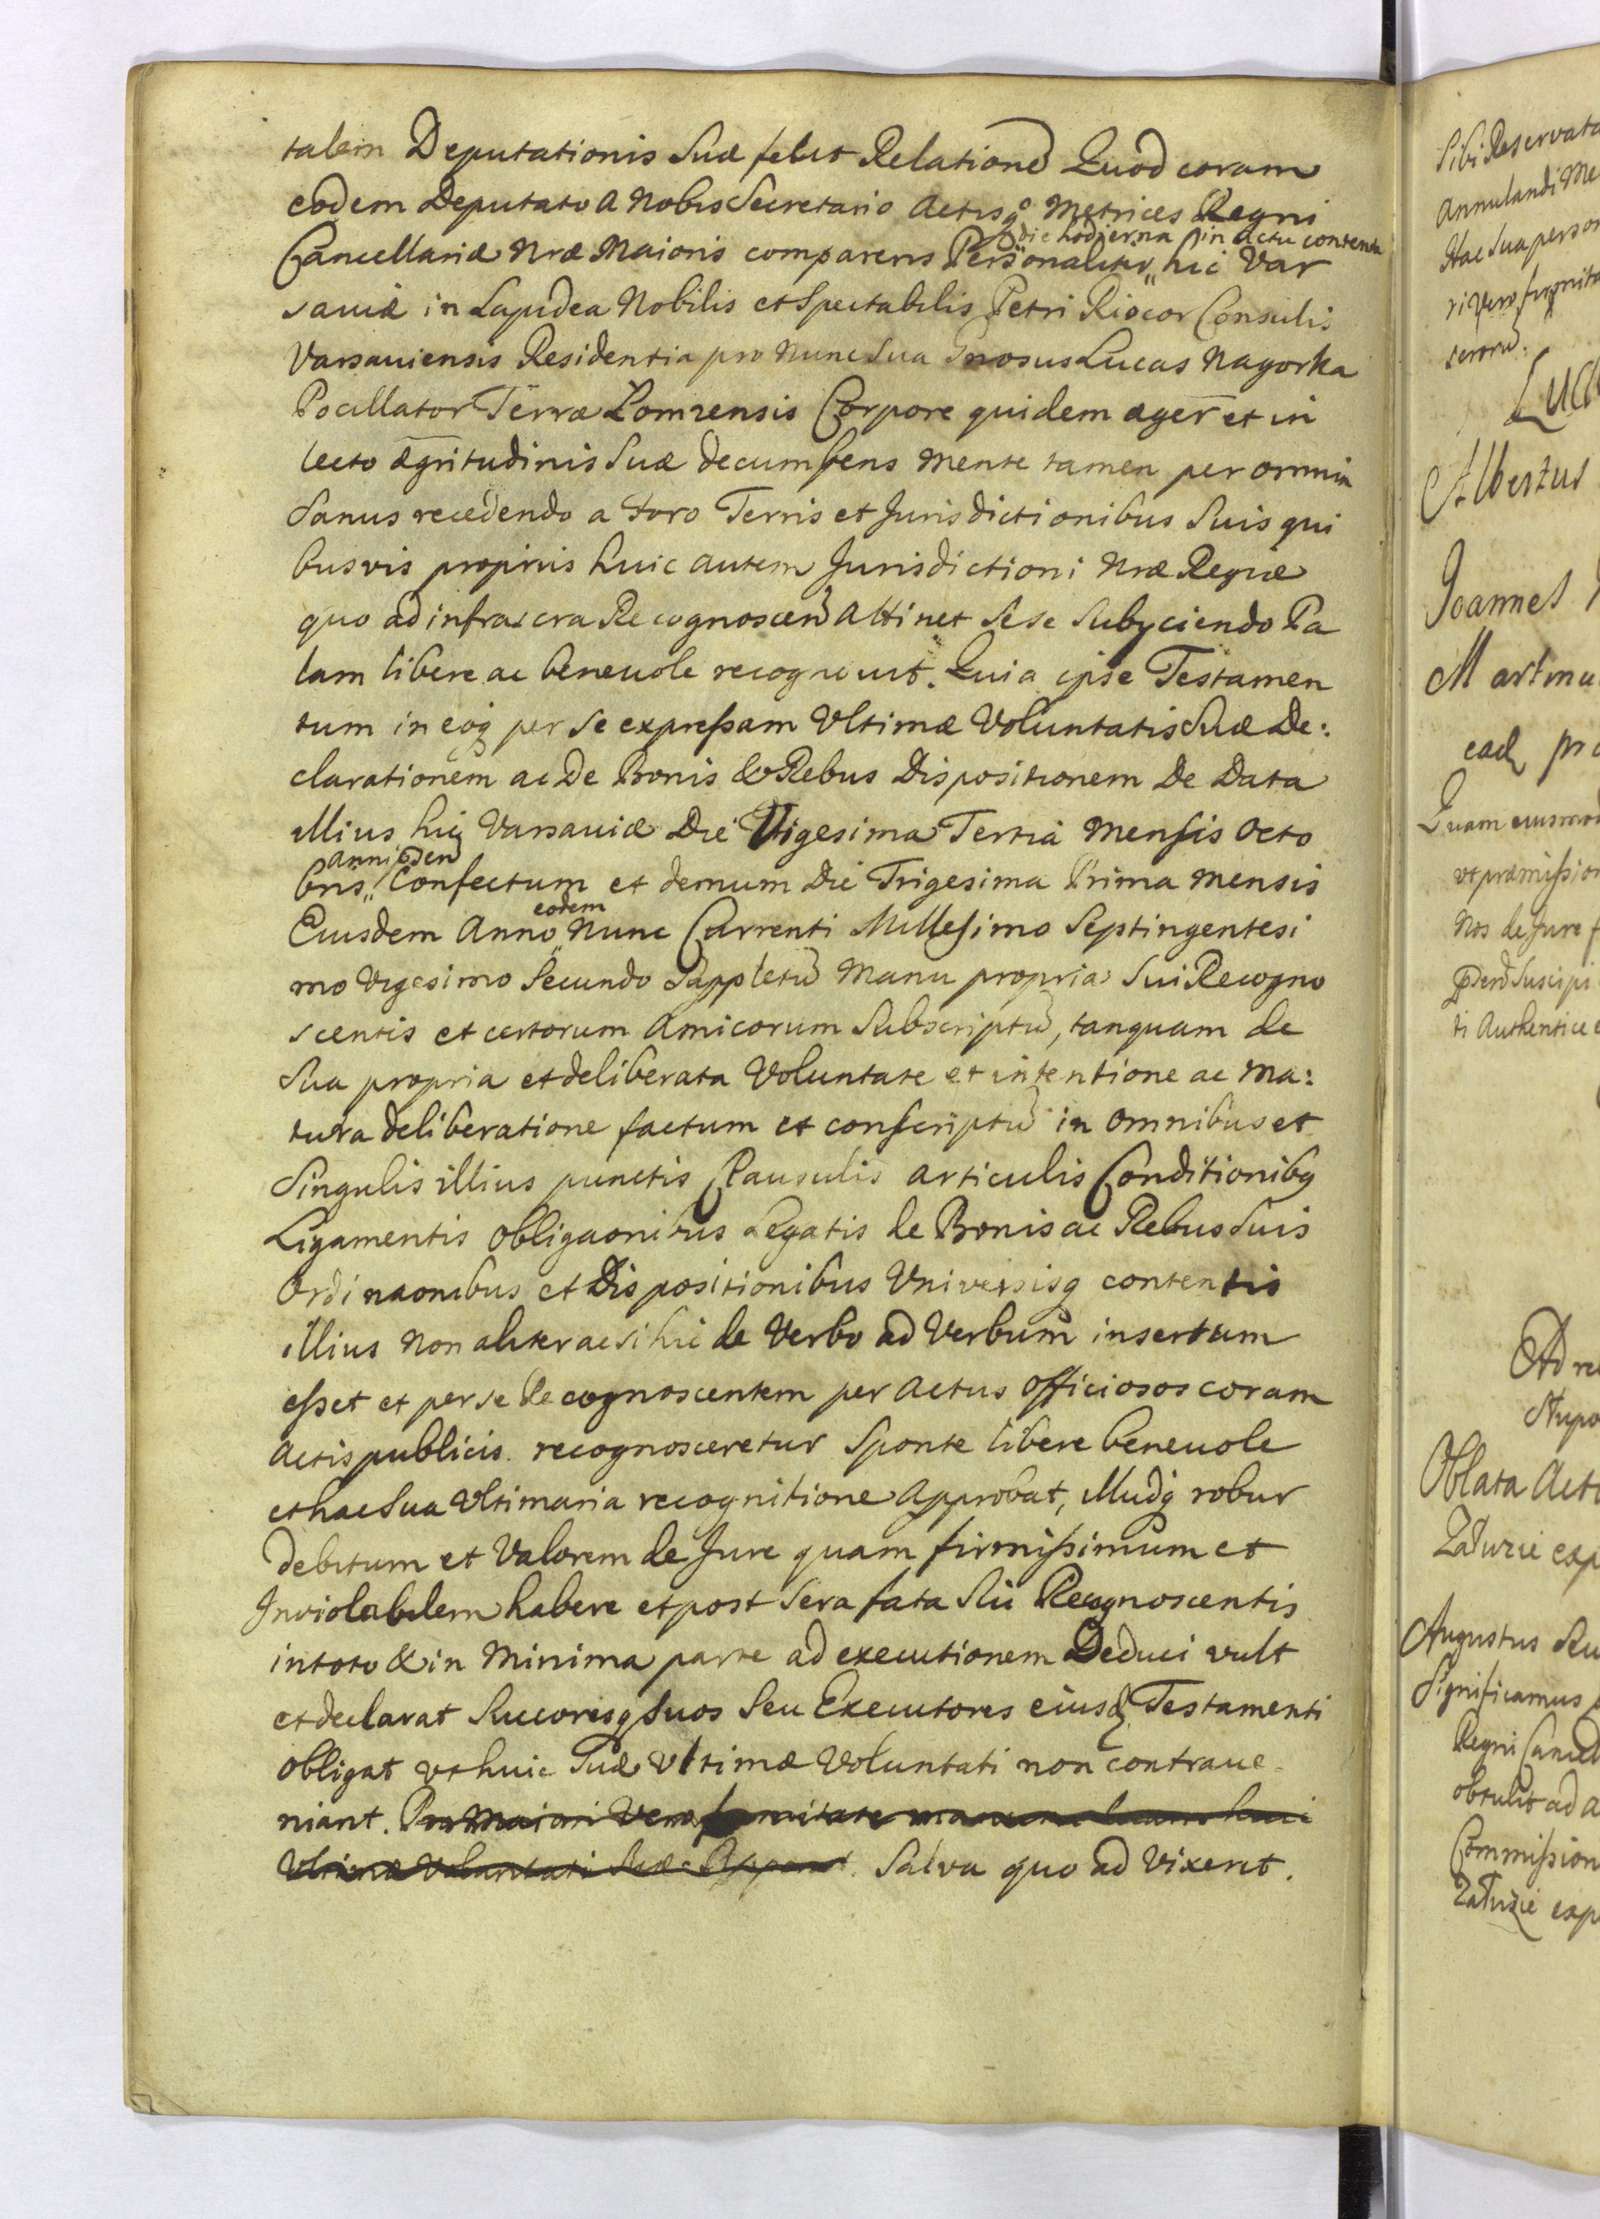 talem Deputationis Suæ fecit Relationẽ Quod coram
eodem Deputato a Nobis Secretario Actisq̃ Metrices Regni
die hodierna in Actu contenta
Cancellariæ Nræ Maioris comparens Personaliter hic Var
saviæ in Lapidea Nobilis et Spectabilis Petri Riocor Consulis
Varsauiensis Residentia pro nunc Sua Gnosus Lucas Nagorka
Pocillator Terræ Lomzensis Corpore quidem æger et in
lecto ægritudinis Suæ decumbens mente tamen per omnia
Sanus recedendo a foro Terris et Jurisdictionibus Suis qui
busvis proprijs huic autem Jurisdictioni Nræ Regiæ
quo ad infrascra Recognoscend attinet Sese Subyciendo Pa
lam libere ac beneuole recognouit. Quia ipse Testamen
tum in eoq̃ per Se expressam Ultimæ Voluntatis Suæ De:
clarationem ac De Bonis & Rebus Dispositionem De Data
illius hic Varsauiæ Die Vigesima Tertia Mensis Octo
Anni eiusdem
bris Confectum et demum Die Trigesima Prima Mensis
eodem
Eiusdem Anno Nunc Currenti Millesimo Septingentesi
mo Vigesimo Secundo Suppletũ Manu propria Sui Recogno
scentis et certorum Amicorum Subscriptũ, tanquam de
Sua propria et deliberata Voluntate et intentione ac Ma:
tura deliberatione factum et conscriptũ in omnibus et
Singulis illius punctis Clausulis articulis Conditionibq
Ligamentis Obligaonibus Legatis de Bonis ac Rebus Suis
Ordinaonibus et Dispositionibus Vniversisq contentis
illius non aliter ac si hic de Verbo ad Verbum insertum
esset et per se Recognoscentem per Actus officiosos coram
Actis publicis recognosceretur Sponte libere beneuole
et hac Sua Vltimaria recognitione approbat, Illudq̃ robur
debitum et Valorem de Jure quam firmissimum et
Inviolabilem habere et post Sera fata Sui Recognoscentis
in toto & in Minima parte ad executionem Deduci vult
et declarat Succoresq̃ Suos Seu Executores eiusd Testamenti
obligat vt huic Suæ Vltimæ Voluntati non contraue
niant. Pro Maiori Vero firmitate
Vltimæ Voluntati Suæ Salva quo ad Vixerit.
Sibi Reservata
Annulandi Me
Hac Sua person
ri Vero firmita
Luca
Albertus
Joannes
Martinu
ead pro
Quam eiusmod
vt præmission
Nos de Jure f
Suscipi
ti Authentice e
Ad re
Oblata Act
Zaturze exp
Augustus Secu
Significamus
Regni Cancel
obtulit ad a
Commission
Zaturze exp